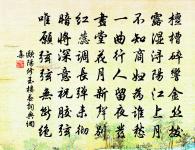 檀槽碎響金絲撥
露濕潯陽江上月
不知商婦為誰愁
一曲行人留夜發
畫堂花月新聲別
紅蕊調長彈未徹
暗將深意祝膠絃
唯願絃絃無斷絕
歐陽修玉樓春詞典網
集